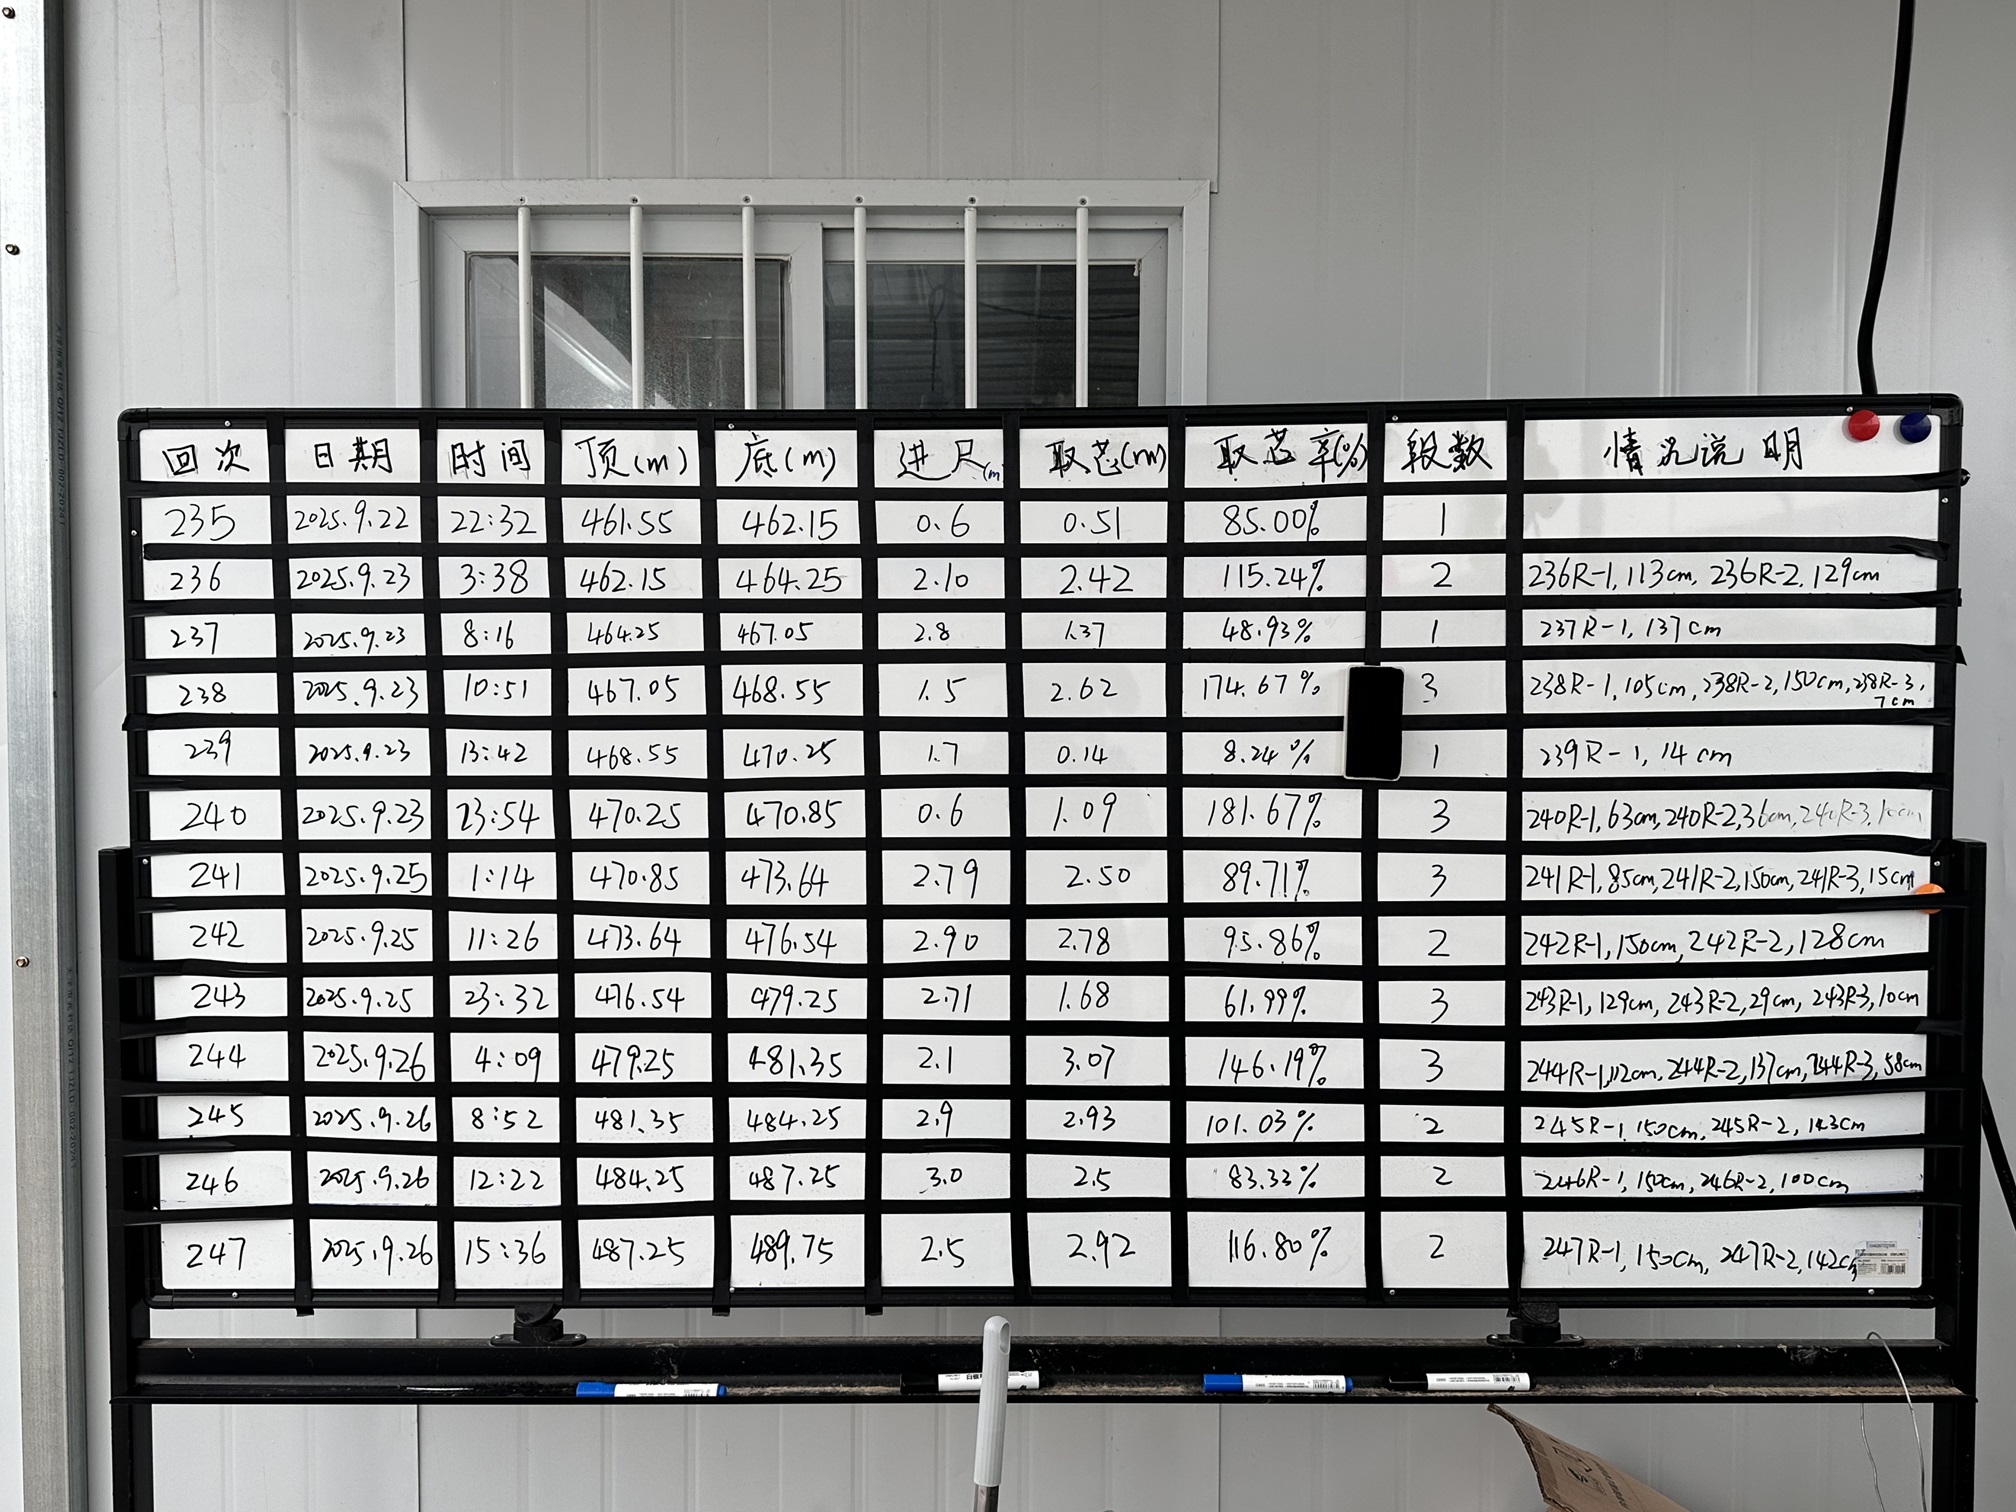 回次 日期 时间 顶(m) 底(m) 进尺(m) 取芯(m) 取芯率(%) 段数 情况说明
235 2025.9.22 22:32 461.55 462.15 0.6 0.51 85.00% 1
236 2025.9.23 3:38 462.15 464.25 2.10 2.42 115.24% 2 236R-1,113cm, 236R-2,129cm
237 2025.9.23 8:16 464.25 467.05 2.8 1.37 48.93% 1 237R-1,137cm
238 2025.9.23 10:51 467.05 468.55 1.5 2.62 174.67% 3 238R-1,105cm,238R-2,150cm,238R-3,
7cm
239 2025.9.23 13:42 468.55 470.25 1.7 0.14 8.24% 1 239R-1,14cm
240 2025.9.23 23:54 470.25 470.85 0.6 1.09 181.67% 3 240R-1,63cm,240R-2,36cm,240R-3,10cm
241 2025.9.25 1:14 470.85 473.64 2.79 2.50 89.71% 3 241R-1,85cm,241R-2,150cm,241R-3,15cm
242 2025.9.25 11:26 473.64 476.54 2.90 2.78 95.86% 2 242R-1,150cm,242R-2,128cm
243 2025.9.25 23:32 476.54 479.25 2.71 1.68 61.99% 3 243R-1,129cm,243R-2,29cm,243R-3,10cm
244 2025.9.26 4:09 479.25 481.35 2.1 3.07 146.19% 3 244R-1,112cm,244R-2,137cm,244R-3,58cm
245 2025.9.26 8:52 481.35 484.25 2.9 2.93 101.03% 2 245R-1,150cm,245R-2,143cm
246 2025.9.26 12:22 484.25 487.25 3.0 2.5 83.33% 2 246R-1,150cm,246R-2,100cm
247 2025.9.26 15:36 487.25 489.75 2.5 2.92 116.80% 2 247R-1,150cm,247R-2,142cm